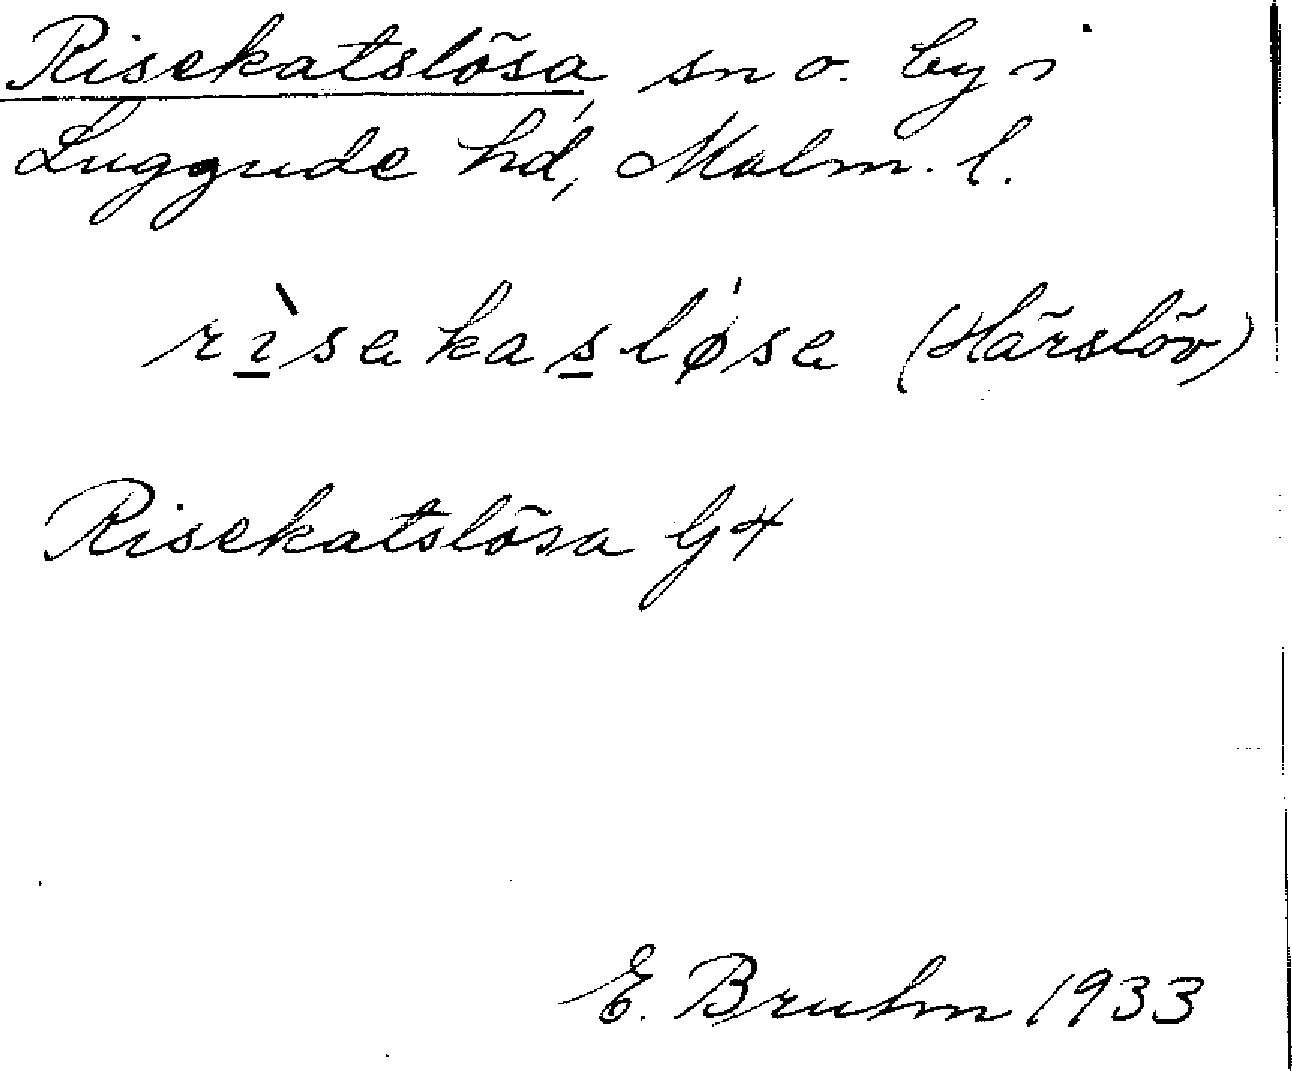 Risekatslösa, sn o. by i
Luggude hd, Malm. l.
rìsekasløse (Härslöv)
Risekatslösa G4
E. Bruhn 1933